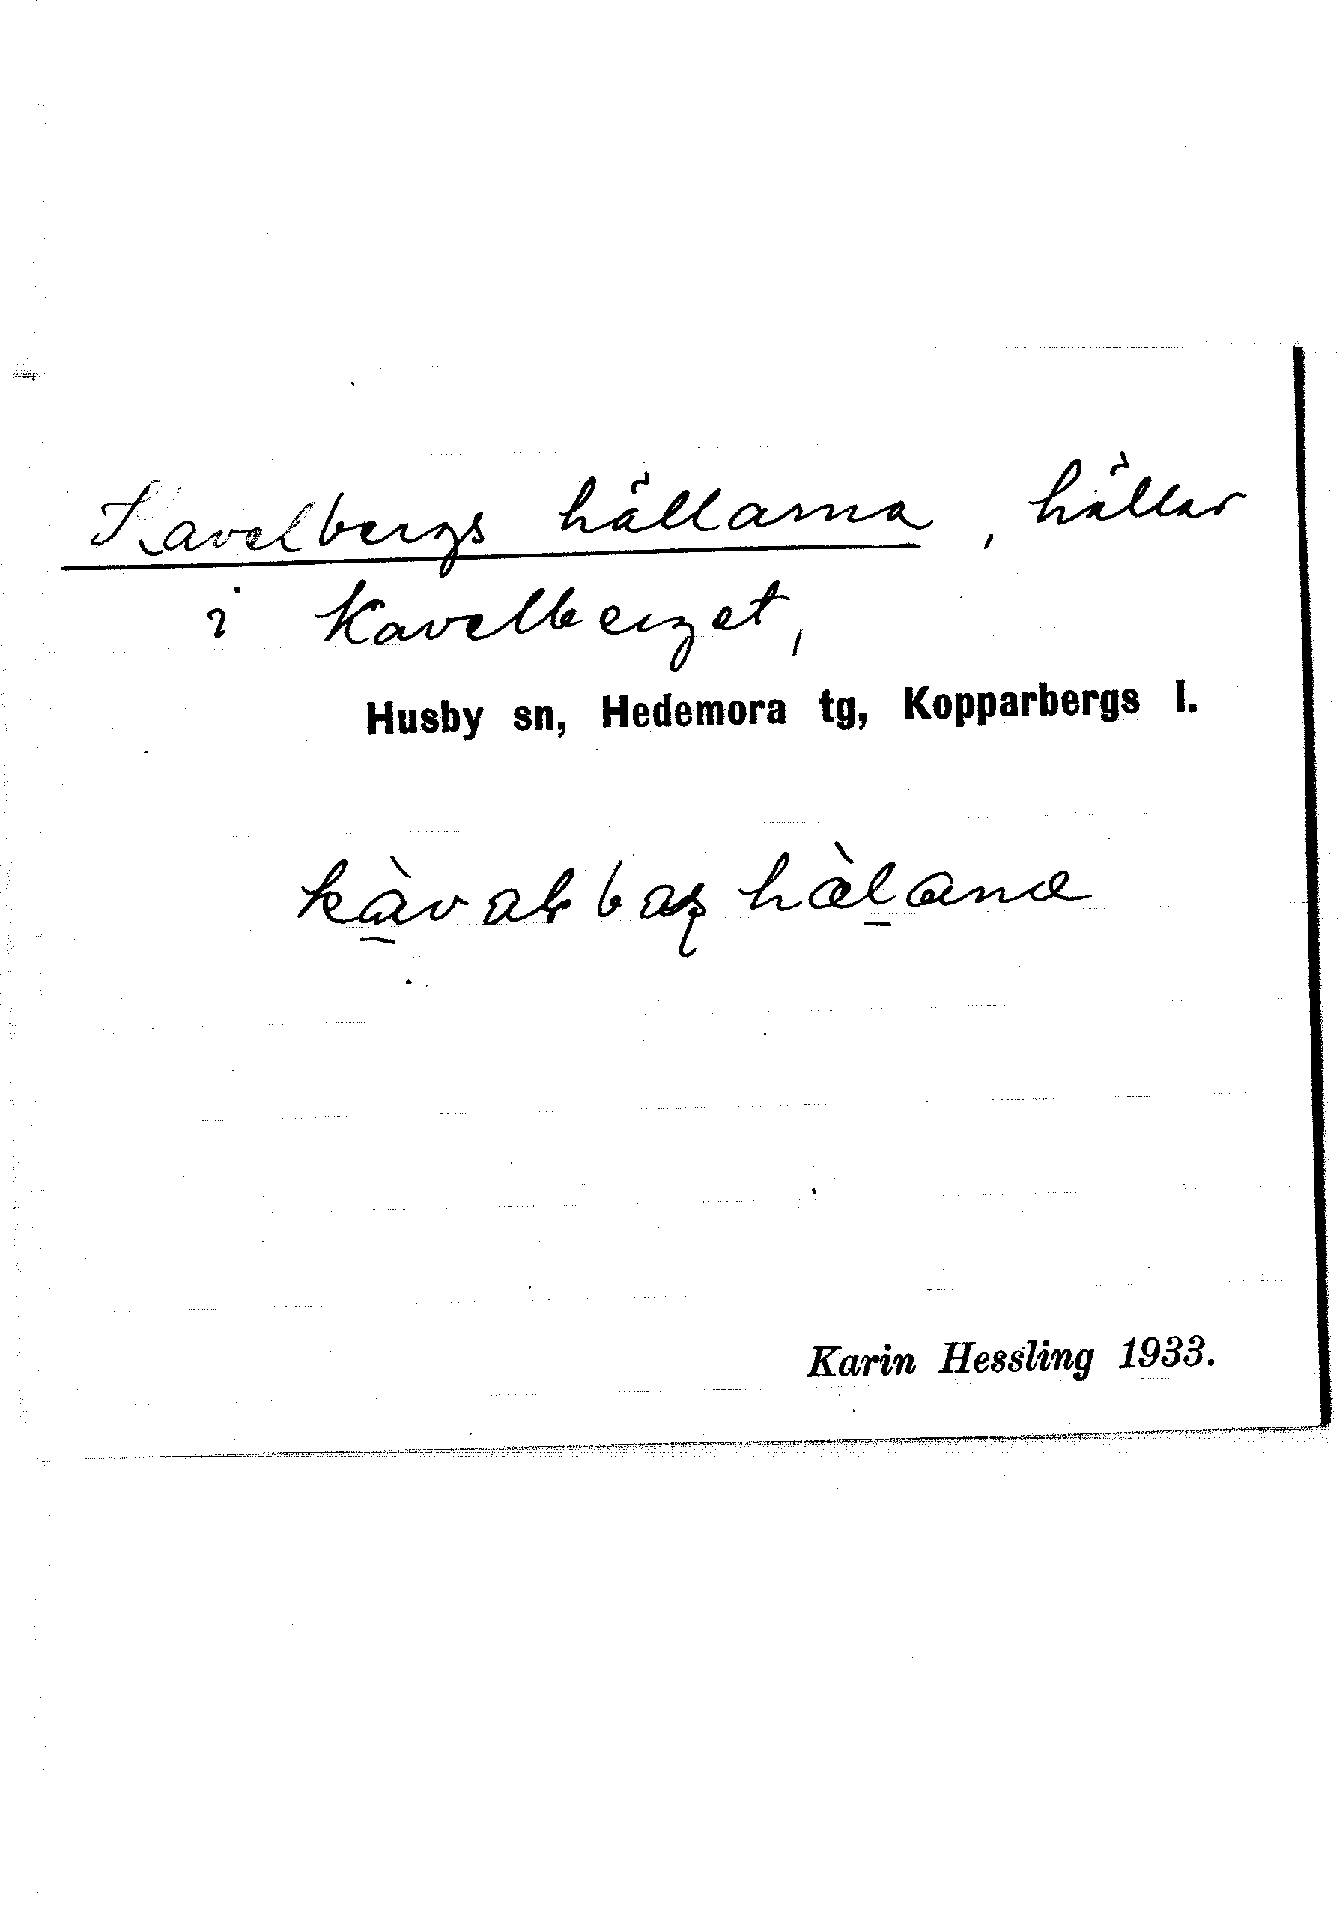 Kavelbergs hällarna, hällar
i Kavelberget,
Husby sn, Hedemora tg, Kopparbergs l.
Karin Hessling 1933.